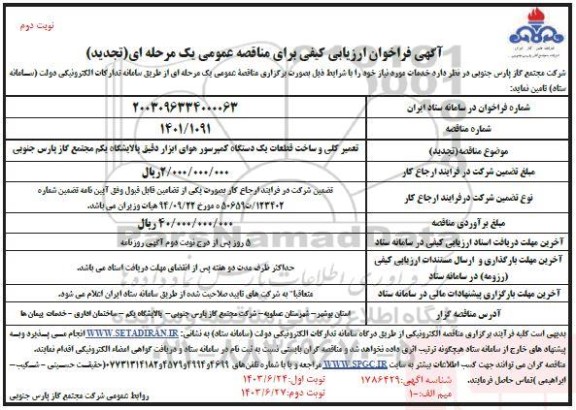 نوبت دوم
آگهی فراخوان ارزیابی کیفی برای مناقصه عمومی یک مرحله ای(تجدید)
شرکت مجتمع گاز پارس جنوبی در نظر دارد خدمات مورد نیاز خود را با شرایط ذیل بصورت برگزاری مناقصه عمومی یک مرحله ای از طریق سامانه تدارکات الکترونیکی دولت (سامانه
ستاد) تامین نماید:
شماره فراخوان در سامانه ستاد ایران ۲۰۰۳۰۹۶۳۳۴۰۰۰۰۶۳
شماره مناقصه ۱۴۰۱/۱۰۹۱
موضوع مناقصه(تجدید) تعمیر کلی و ساخت قطعات یک دستگاه کمپرسور هوای ابزار دقیق پالایشگاه یکم مجتمع گاز پارس جنوبی
مبلغ تضمین شرکت در فرایند ارجاع کار ۲/۰۰۰/۰۰۰/۰۰۰ریال
نوع تضمین شرکت درفرایند ارجاع کار تضمین شرکت در فرایند ارجاع کار بصورت یکی از تضامین قابل قبول وفق آیین نامه تضمین شماره
۱۲۳۴۰۲/ت۵۰۶۵۹ه مورخ ۹۴/۰۹/۲۲ هیات وزیران می باشد.
مبلغ برآوردی مناقصه ۴۰/۰۰۰/۰۰۰/۰۰۰ریال
آخرین مهلت دریافت اسناد ارزیابی کیفی در سامانه ستاد ۵ روز پس از درج نوبت دوم آگهی روزنامه
آخرین مهلت بارگذاری و ارسال مستندات ارزیابی کیفی
(رزومه) در سامانه ستاد حداکثر ظرف مدت دو هفته پس از انقضای مهلت دریافت اسناد می باشد.
آخرین مهلت بارگزاری پیشنهادات مالی در سامانه ستاد متعاقبا" به شرکت های تایید صلاحیت شده از طریق سامانه ستاد ایران اعلام می شود.
آدرس مناقصه گزار استان بوشهر– شهرستان عسلویه– شرکت مجتمع گاز پارس جنوبی – پالایشگاه یکم – ساختمان اداری - خدمات پیمان ها
بدیهی است کلیه فرآیند برگزاری مناقصه الکترونیکی از طریق درگاه سامانه تدارکات الکترونیکی دولت (سامانه ستاد) به نشانی: WWW.SETADIRAN.IR انجام می پذیرد وبه
پیشنهاد های خارج از سامانه ستاد هیچگونه ترتیب اثری داده نخواهد شد و مناقصه گران بایستی نسبت به ثبت نام در سامانه ستاد و دریافت گواهی امضاء الکترونیکی اقدام نمایند.
مناقصه گران می توانند جهت کسب اطلاعات بیشتر به سایت WWW.SPGC.IR مراجعه و یا با شماره تلفن های
ابراهیمی) تماس حاصل فرمایند. شناسه آگهی: ۱۷۸۶۴۲۹ نوبت اول: ۱۴۰۳/۶/۲۴
میم الف: ۱۰ نوبت دوم: ۱۴۰۳/۶/۲۷ روابط عمومی شرکت مجتمع گاز پارس جنوبی